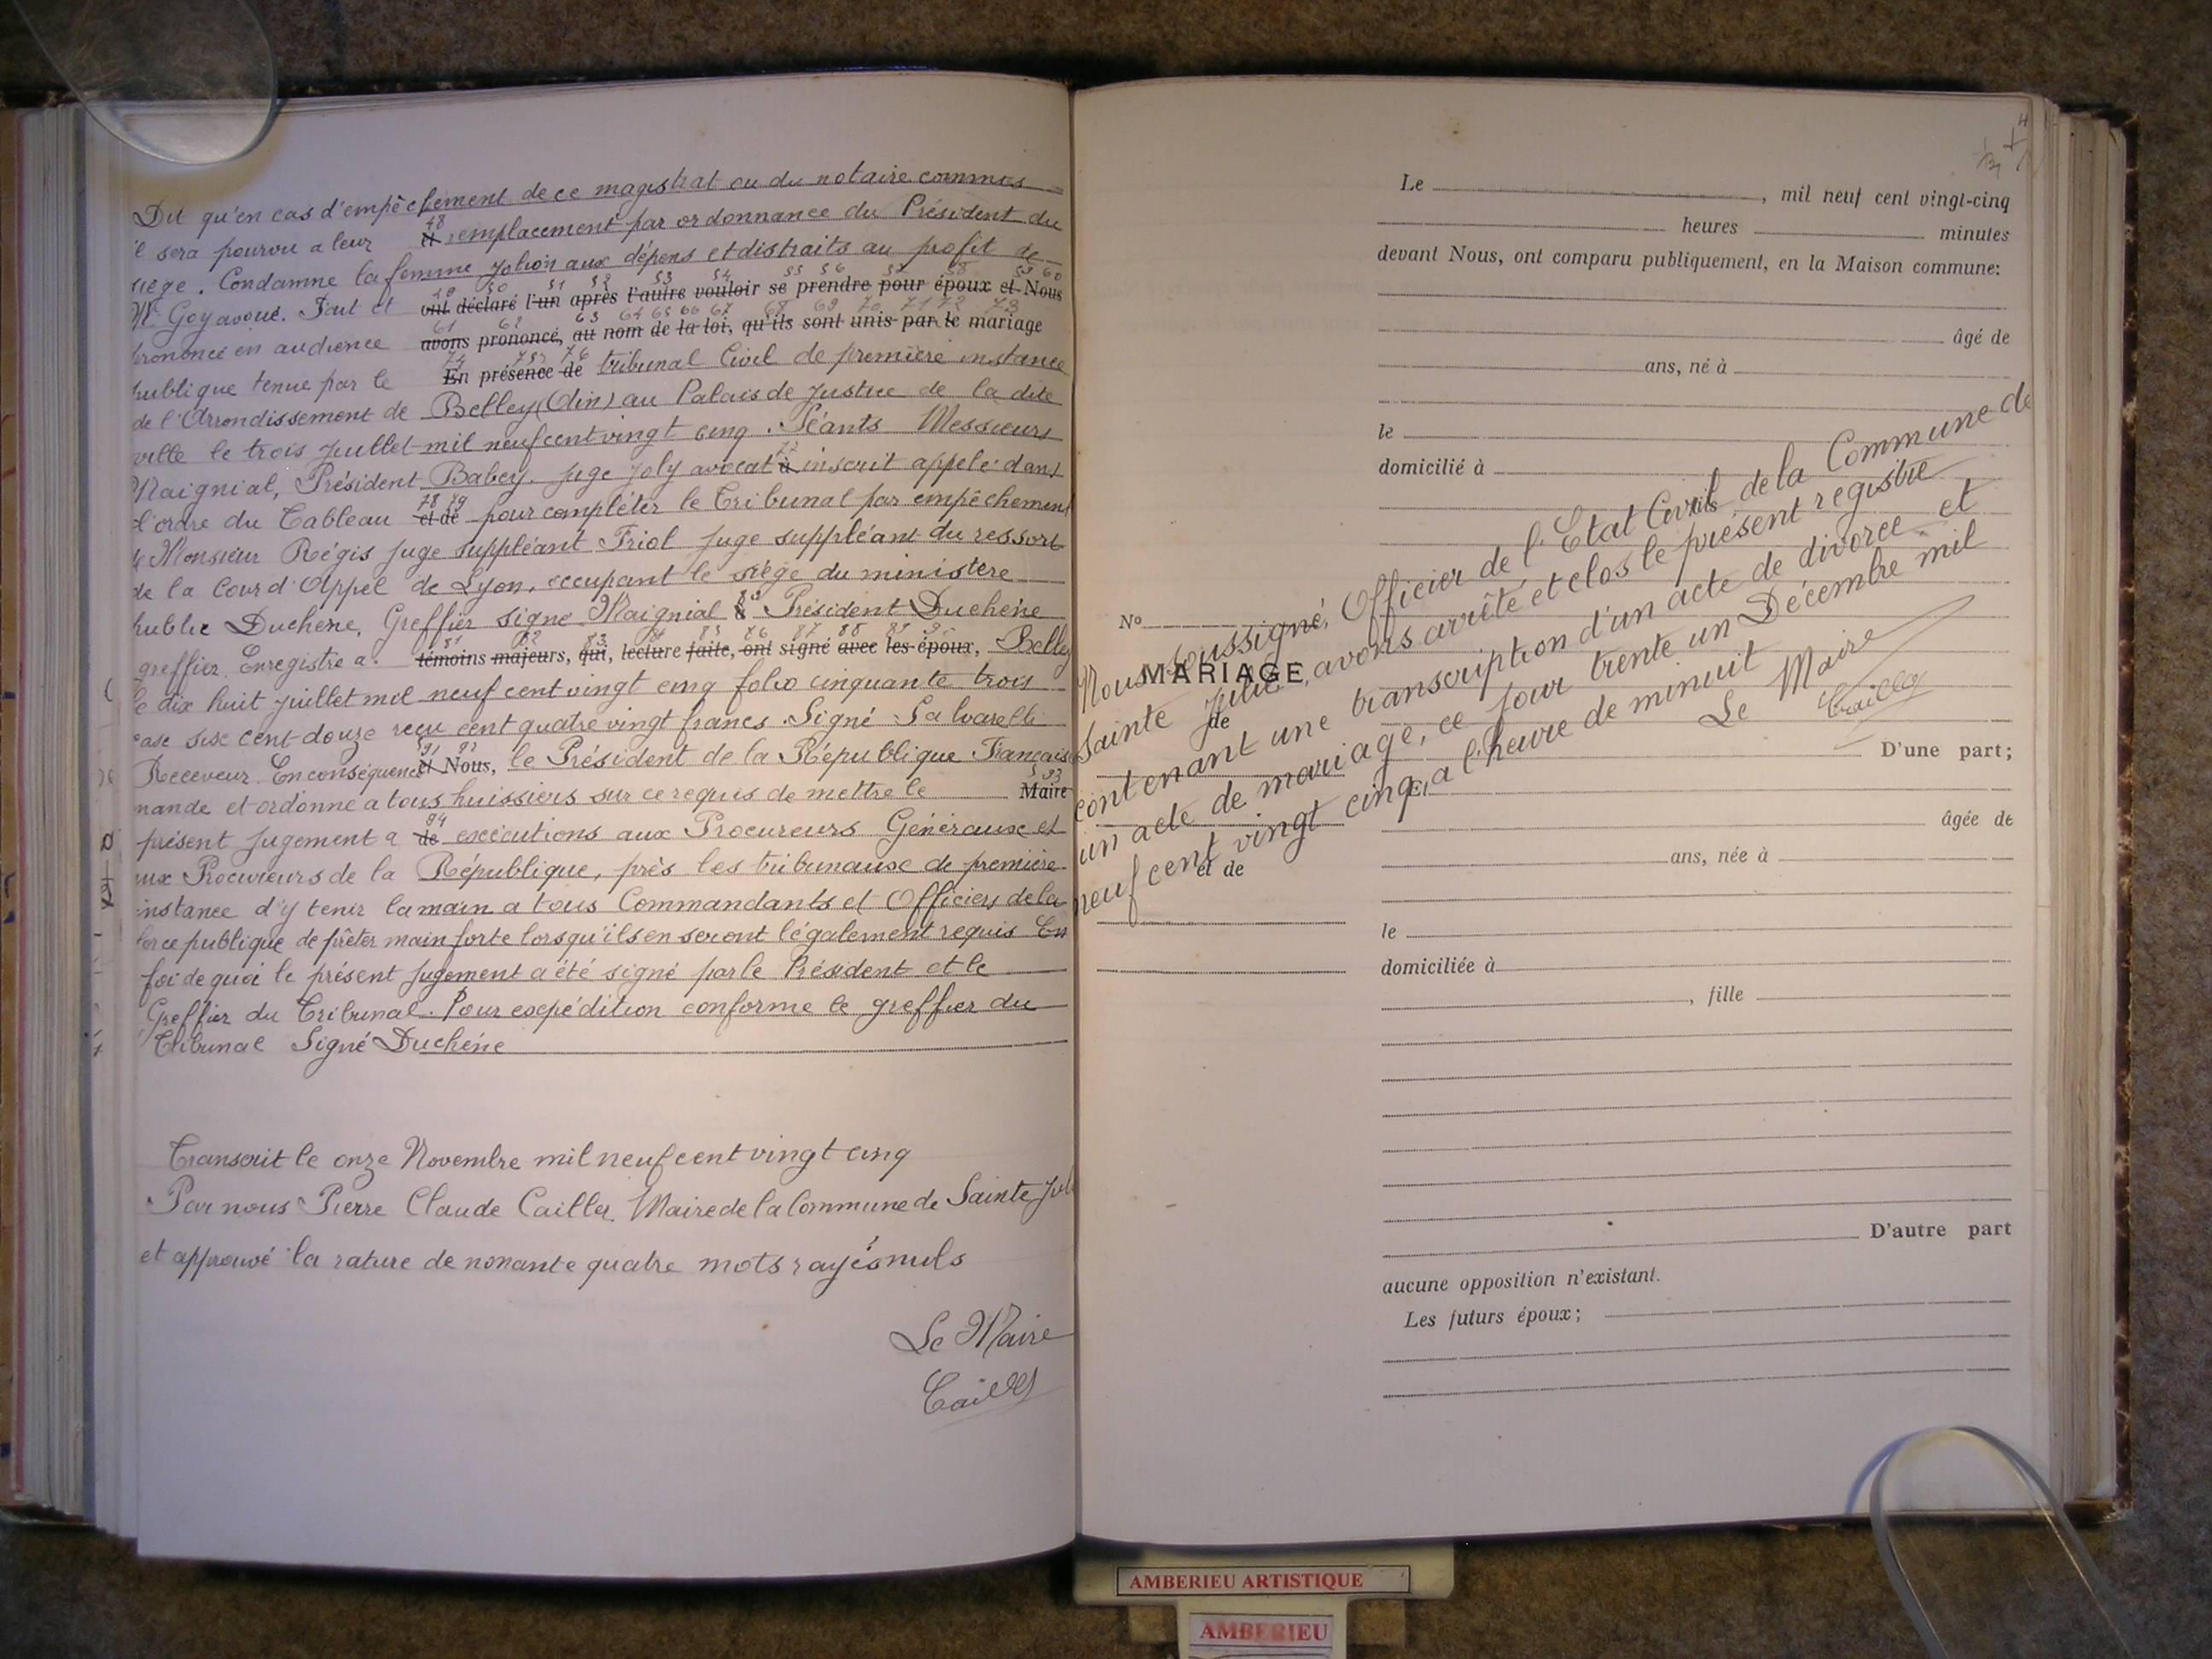 Dit qu'en cas d'empêchement de ce magistrat ou du notaire commis
il sera pourvu a leur et remplacement par ordonnance du Président du
siège. Condamne la femme Jolion aux dépens et distraits au profit de
Me Goy avoué. Fait et ont déclaré l'un après l'autre vouloir se prendre pour époux et Nous
prononcé en audience avons prononcé, au nom de la loi, qu'ils sont unis par le mariage
publique tenue par le En présence de tribunal Civil de première instance
de l'Arrondissement de Belley (Ain) au Palais de Justice de la dite
ville le trois Juillet mil neuf cent vingt cinq. Séants Messieurs
Maignial, Président Babey, juge Joly avocat à inscrit appelé dans
l'ordre du Tableau et de pour compléter le Tribunal par empêchement
de Monsieur Régis juge suppléant Friol juge suppléant du ressort
de la Cour d'Appel de Lyon, occupant le siège du ministère
public Duchêne, Greffier signé Maignial Président Duchêne
greffier. Enregistré a. témoins majeurs, qui, lecture faite, ont signé avec les époux, Belley
le dix huit juillet mil neuf cent vingt cinq folio cinquante trois
case six cent douze reçu cent quatre vingt francs. Signé Salvarelli
Receveur. En conséquence et Nous, le Président de la République Français
mande et ordonne a tous huissiers sur ce requis de mettre le Maire
présent jugement a de exécutions aux Procureurs Généraux et
aux Procureurs de la République, près les tribunaux de première
instance d'y tenir la main a tous Commandants et Officiers de la
force publique de prêter main forte lorsqu'ils en seront légalement requis En
foi de quoi le présent jugement a été signé par le Président et le
Greffier du Tribunal. Pour expédition conforme le greffier du
Tribunal Signé Duchêne
Transcrit le onze Novembre mil neuf cent vingt cinq
Par nous Pierre Claude Cailler, Maire de la Commune de Sainte Jul
et approuvé la rature de nonante quatre mots rayés nuls
Le Maire
Cailler
Le , mil neuf cent vingt-cinq
heures minutes
devant Nous, ont comparu publiquement, en la Maison commune:
âgé de
ans, né à
le
domicilié à
fils
No
MARIAGE
de
Nous soussigné, Officier de l'Etat Civil de la Commune de
Sainte Julie, avons arrêté et clos le présent registre
contenant une transcription d'un acte de divorce et
un acte de mariage, ce jour trente un Décembre mil
neuf cent vingt cinq, a l'heure de minuit
Le Maire
Cailler
D'une part;
Et
âgée de
ans, née à
et de
le
domiciliée à
, fille
D'autre part
aucune opposition n'existant.
Les futurs époux;
AMBERIEU ARTISTIQUE
AMBERIEU